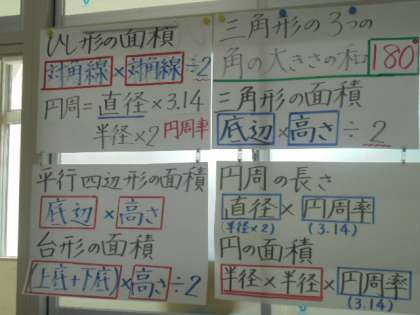 ひし形の面積
対角線×対角線÷2
円周=直径×3.14
半径×2 円周率
三角形の3つの
角の大きさの和 180°
三角形の面積
底辺×高さ÷2
平行四辺形の面積
底辺×高さ
台形の面積
(上底+下底)×高さ÷2
円周の長さ
直径×円周率
(半径×2) (3.14)
円の面積
半径×半径×円周率
(3.14)